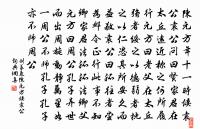 陳元方年十一時候袁
公袁公問曰賢家君在
太丘遠近稱之何所履
行元方曰老父在太丘
强者綏之以德弱者撫
之以仁恣其所安久而
益敬袁公曰孤往者嘗
為鄴令正行此事不知
卿家君法孤孤法卿父
元方曰周公孔子異世
而出周旋動靜萬里如
一周公不師孔子孔子
亦不師周公
劉義慶陳元方候袁公